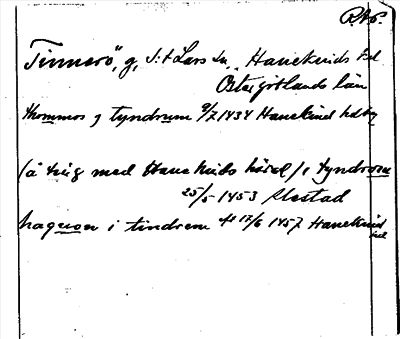 R.A.P.
Tinnerö, g, S:t Lars sn, Hanekinds hd
Östergötlands län
thommos j tyndrum 9/7 1434 Hanekind hdbr
(å ting med Hanekinds härad) i tyndrom
25/5 1453 Ulestad
haquon i tindrem 17/6 1457 Hanekind
hd